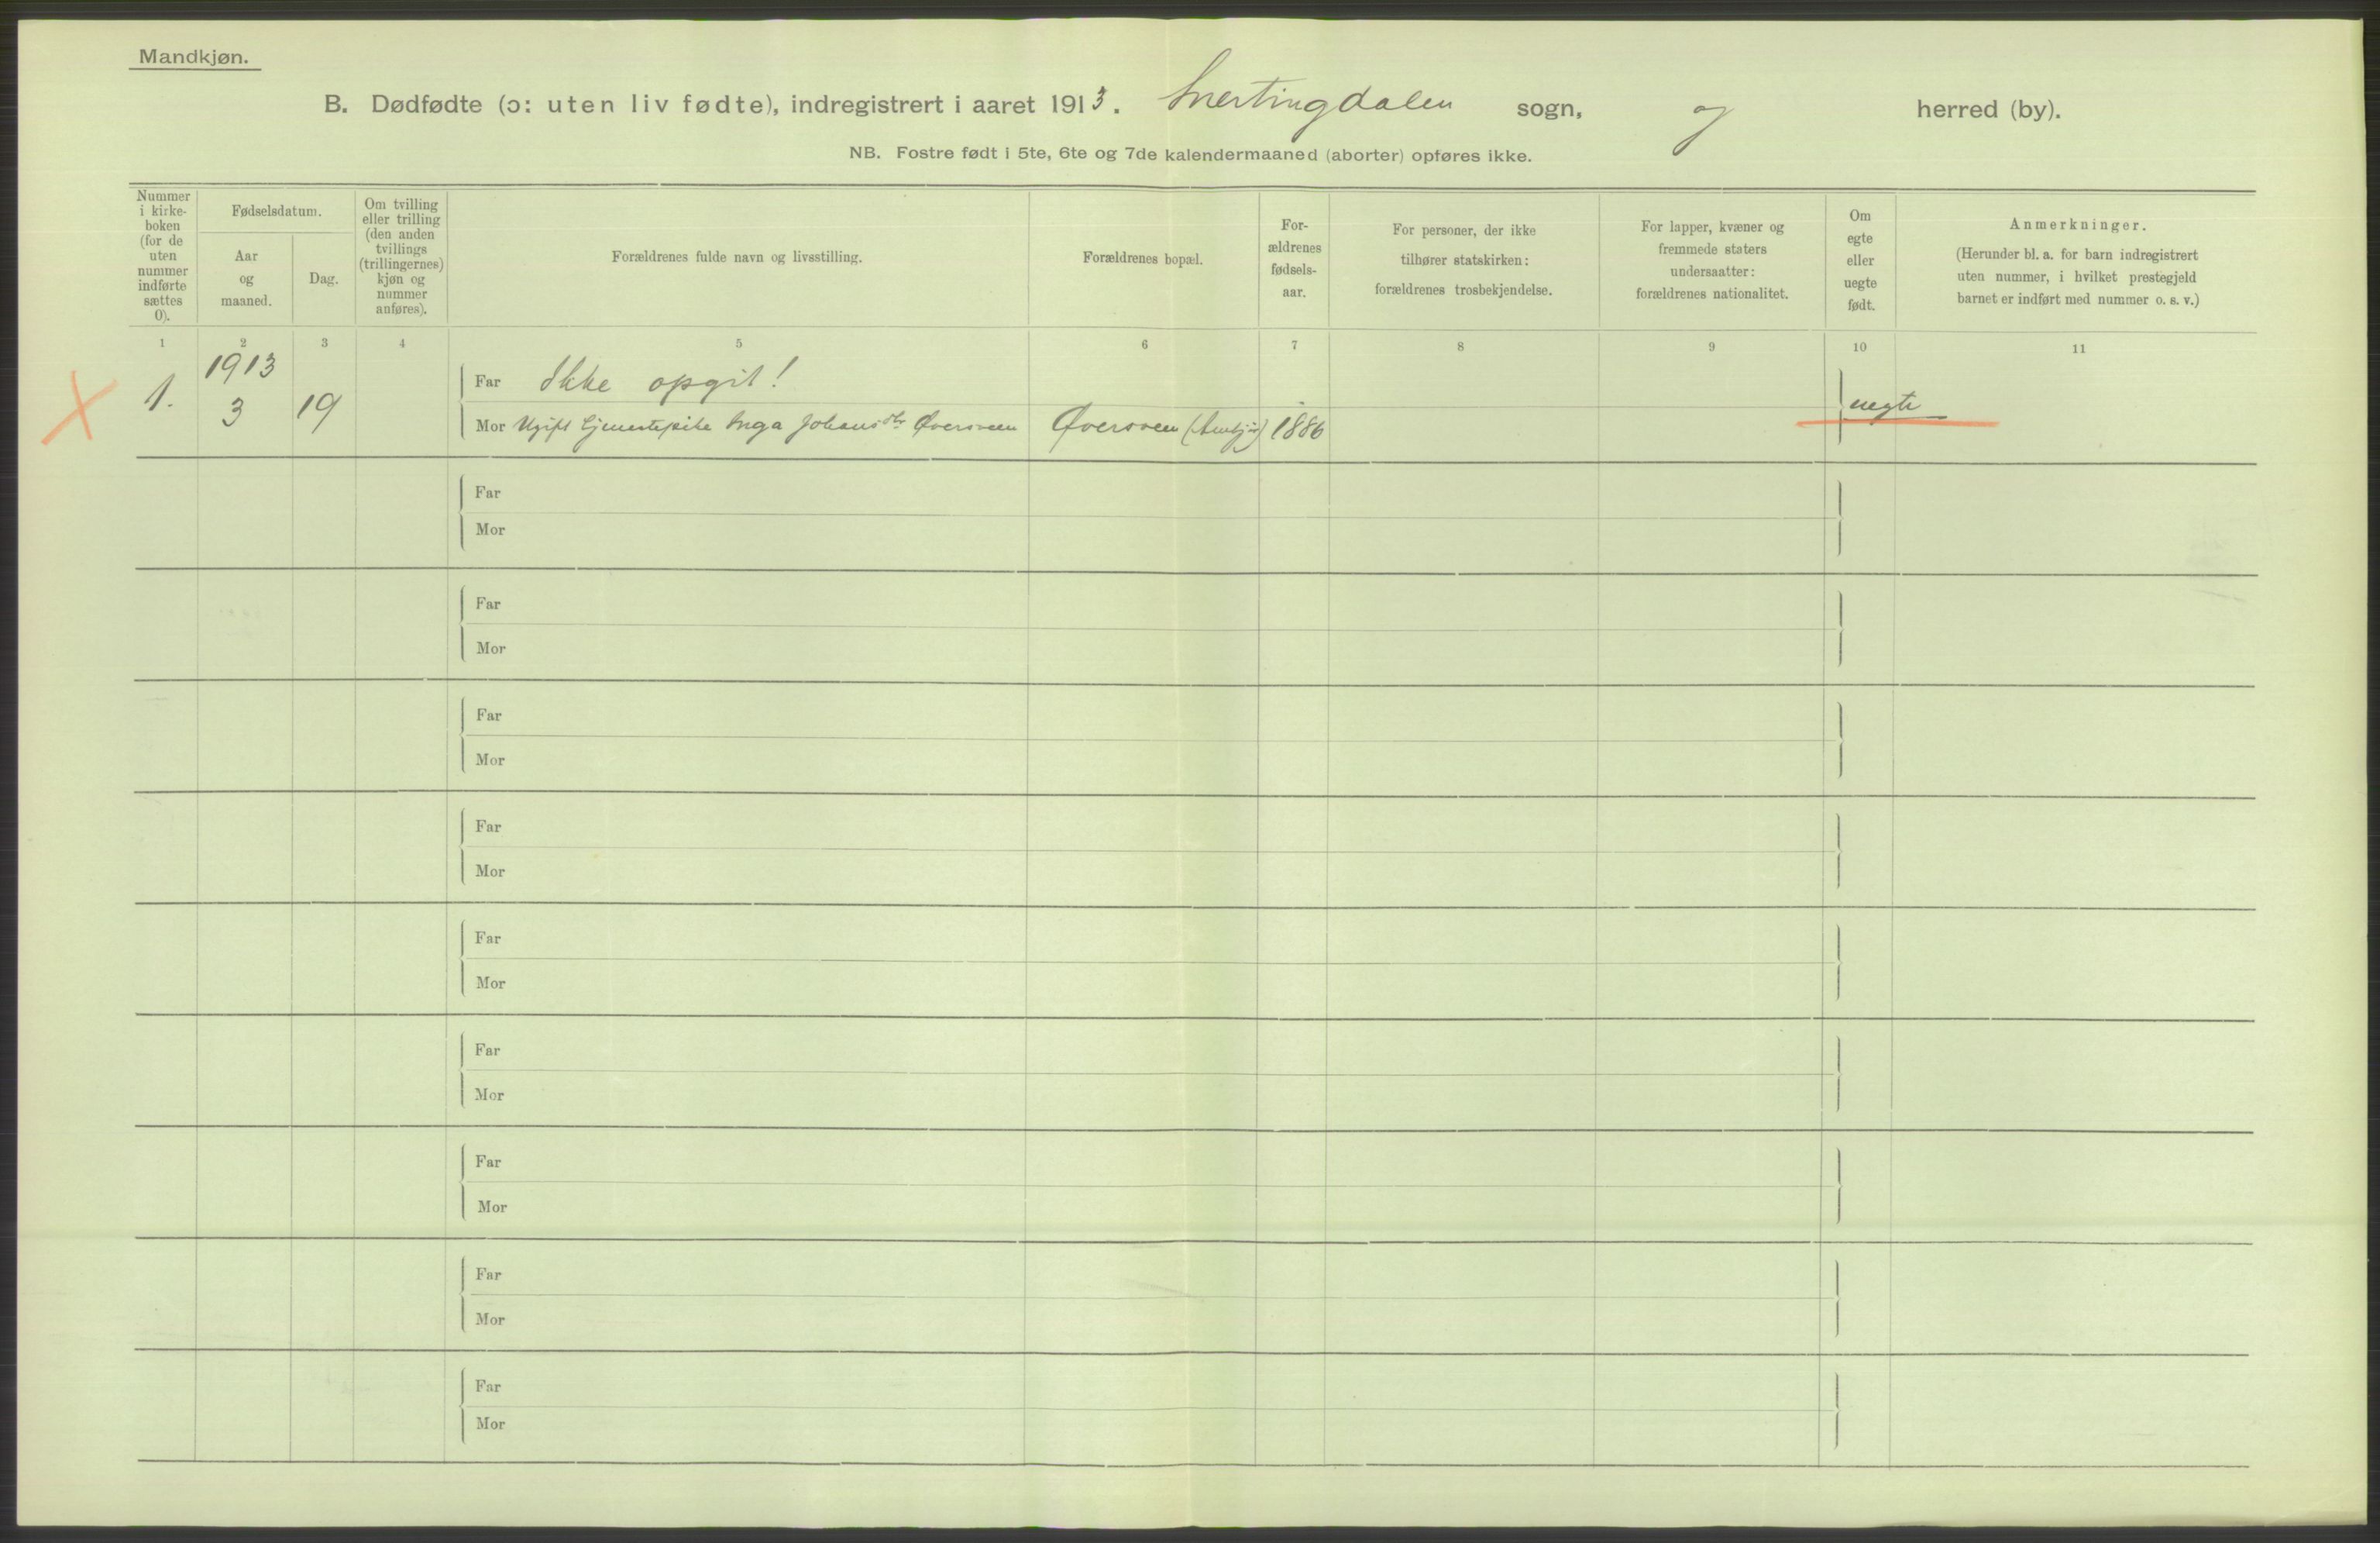 Mandkjøn.
B. Dødfødte (ɔ: uten liv fødte), indregistrert i aaret 1913. Snertingdalen sogn, og herred (by).
NB. Fostre født i 5te, 6te og 7de kalendermaaned (aborter) opføres ikke.
Nummer
i kirke-
boken
(for de
uten
nummer
indførte
sættes
0).
Fødselsdatum.
Aar
og
maaned.
Dag.
Om tvilling
eller trilling
(den anden
tvillings
(trillingernes)
kjøn og
nummer
anføres).
Forældrenes fulde navn og livsstilling.
Forældrenes bopæl.
For-
ældrenes
fødsels-
aar.
For personer, der ikke
tilhører statskirken:
forældrenes trosbekjendelse.
For lapper, kvæner og
fremmede staters
undersaatter:
forældrenes nationalitet.
Om
egte
eller
uegte
født.
Anmerkninger.
(Herunder bl. a. for barn indregistrert
uten nummer, i hvilket prestegjeld
barnet er indført med nummer o. s. v.)
1 2 3 4 5 6 7 8 9 10 11
1913
Far Ikke opgit!
1. 3 19 uegte
Mor Ugift tjenestepike Inga Johansdtr Øversveen Øversveen 1886
Far
Mor
Far
Mor
Far
Mor
Far
Mor
Far
Mor
Far
Mor
Far
Mor
Far
Mor
Far
Mor